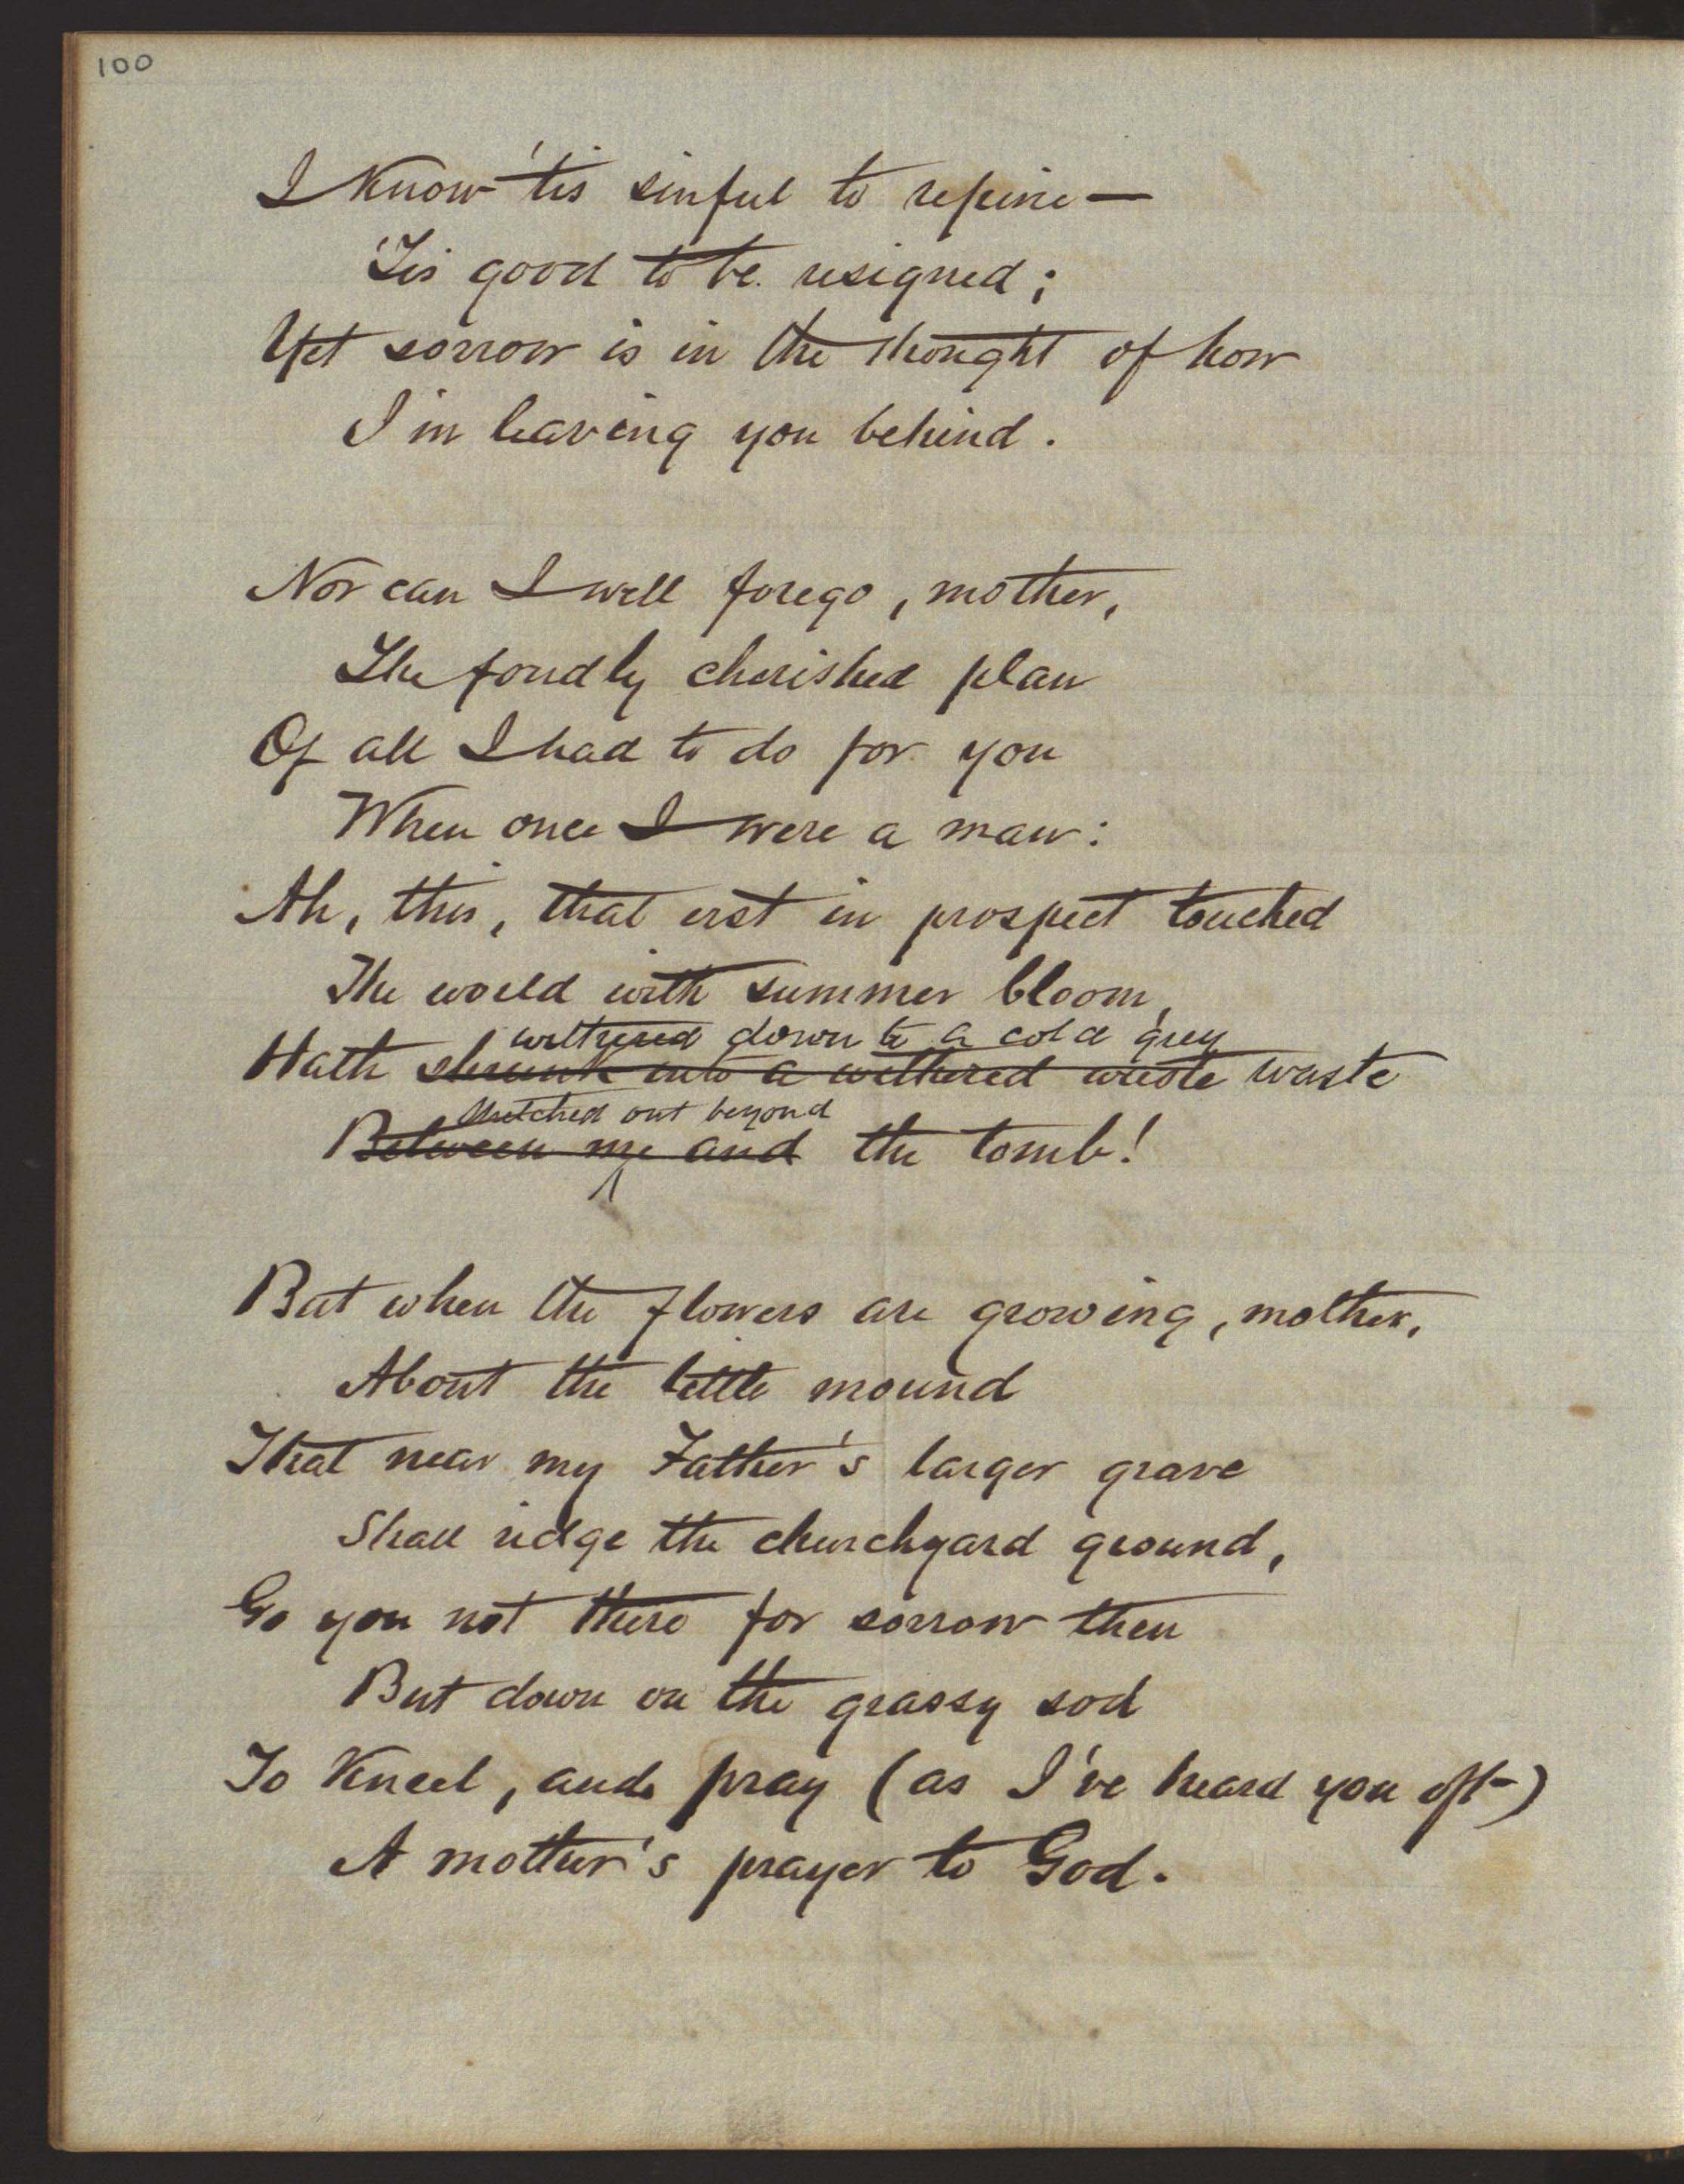 100
I know 'tis sinful to repine —
'Tis good to be resigned;
Yet sorrow is in the thought of how
I'm leaving you behind.
Nor can I well forego, mother,
The fondly cherished plan
Of all I had to do for you
When once I were a man:
Ah, this, that erst in prospect touched
The world with summer bloom,
withered down to a cold grey
Hath shrunk into a withered waste waste
stretched out beyond
Between me and the tomb!
But when the flowers are growing, mother,
About the little mound
That near my Father's larger grave
Shall ridge the churchyard ground,
Go you not there for sorrow then
But down on the grassy sod
To kneel, and pray (as I've heard you oft-)
A mother's prayer to God.